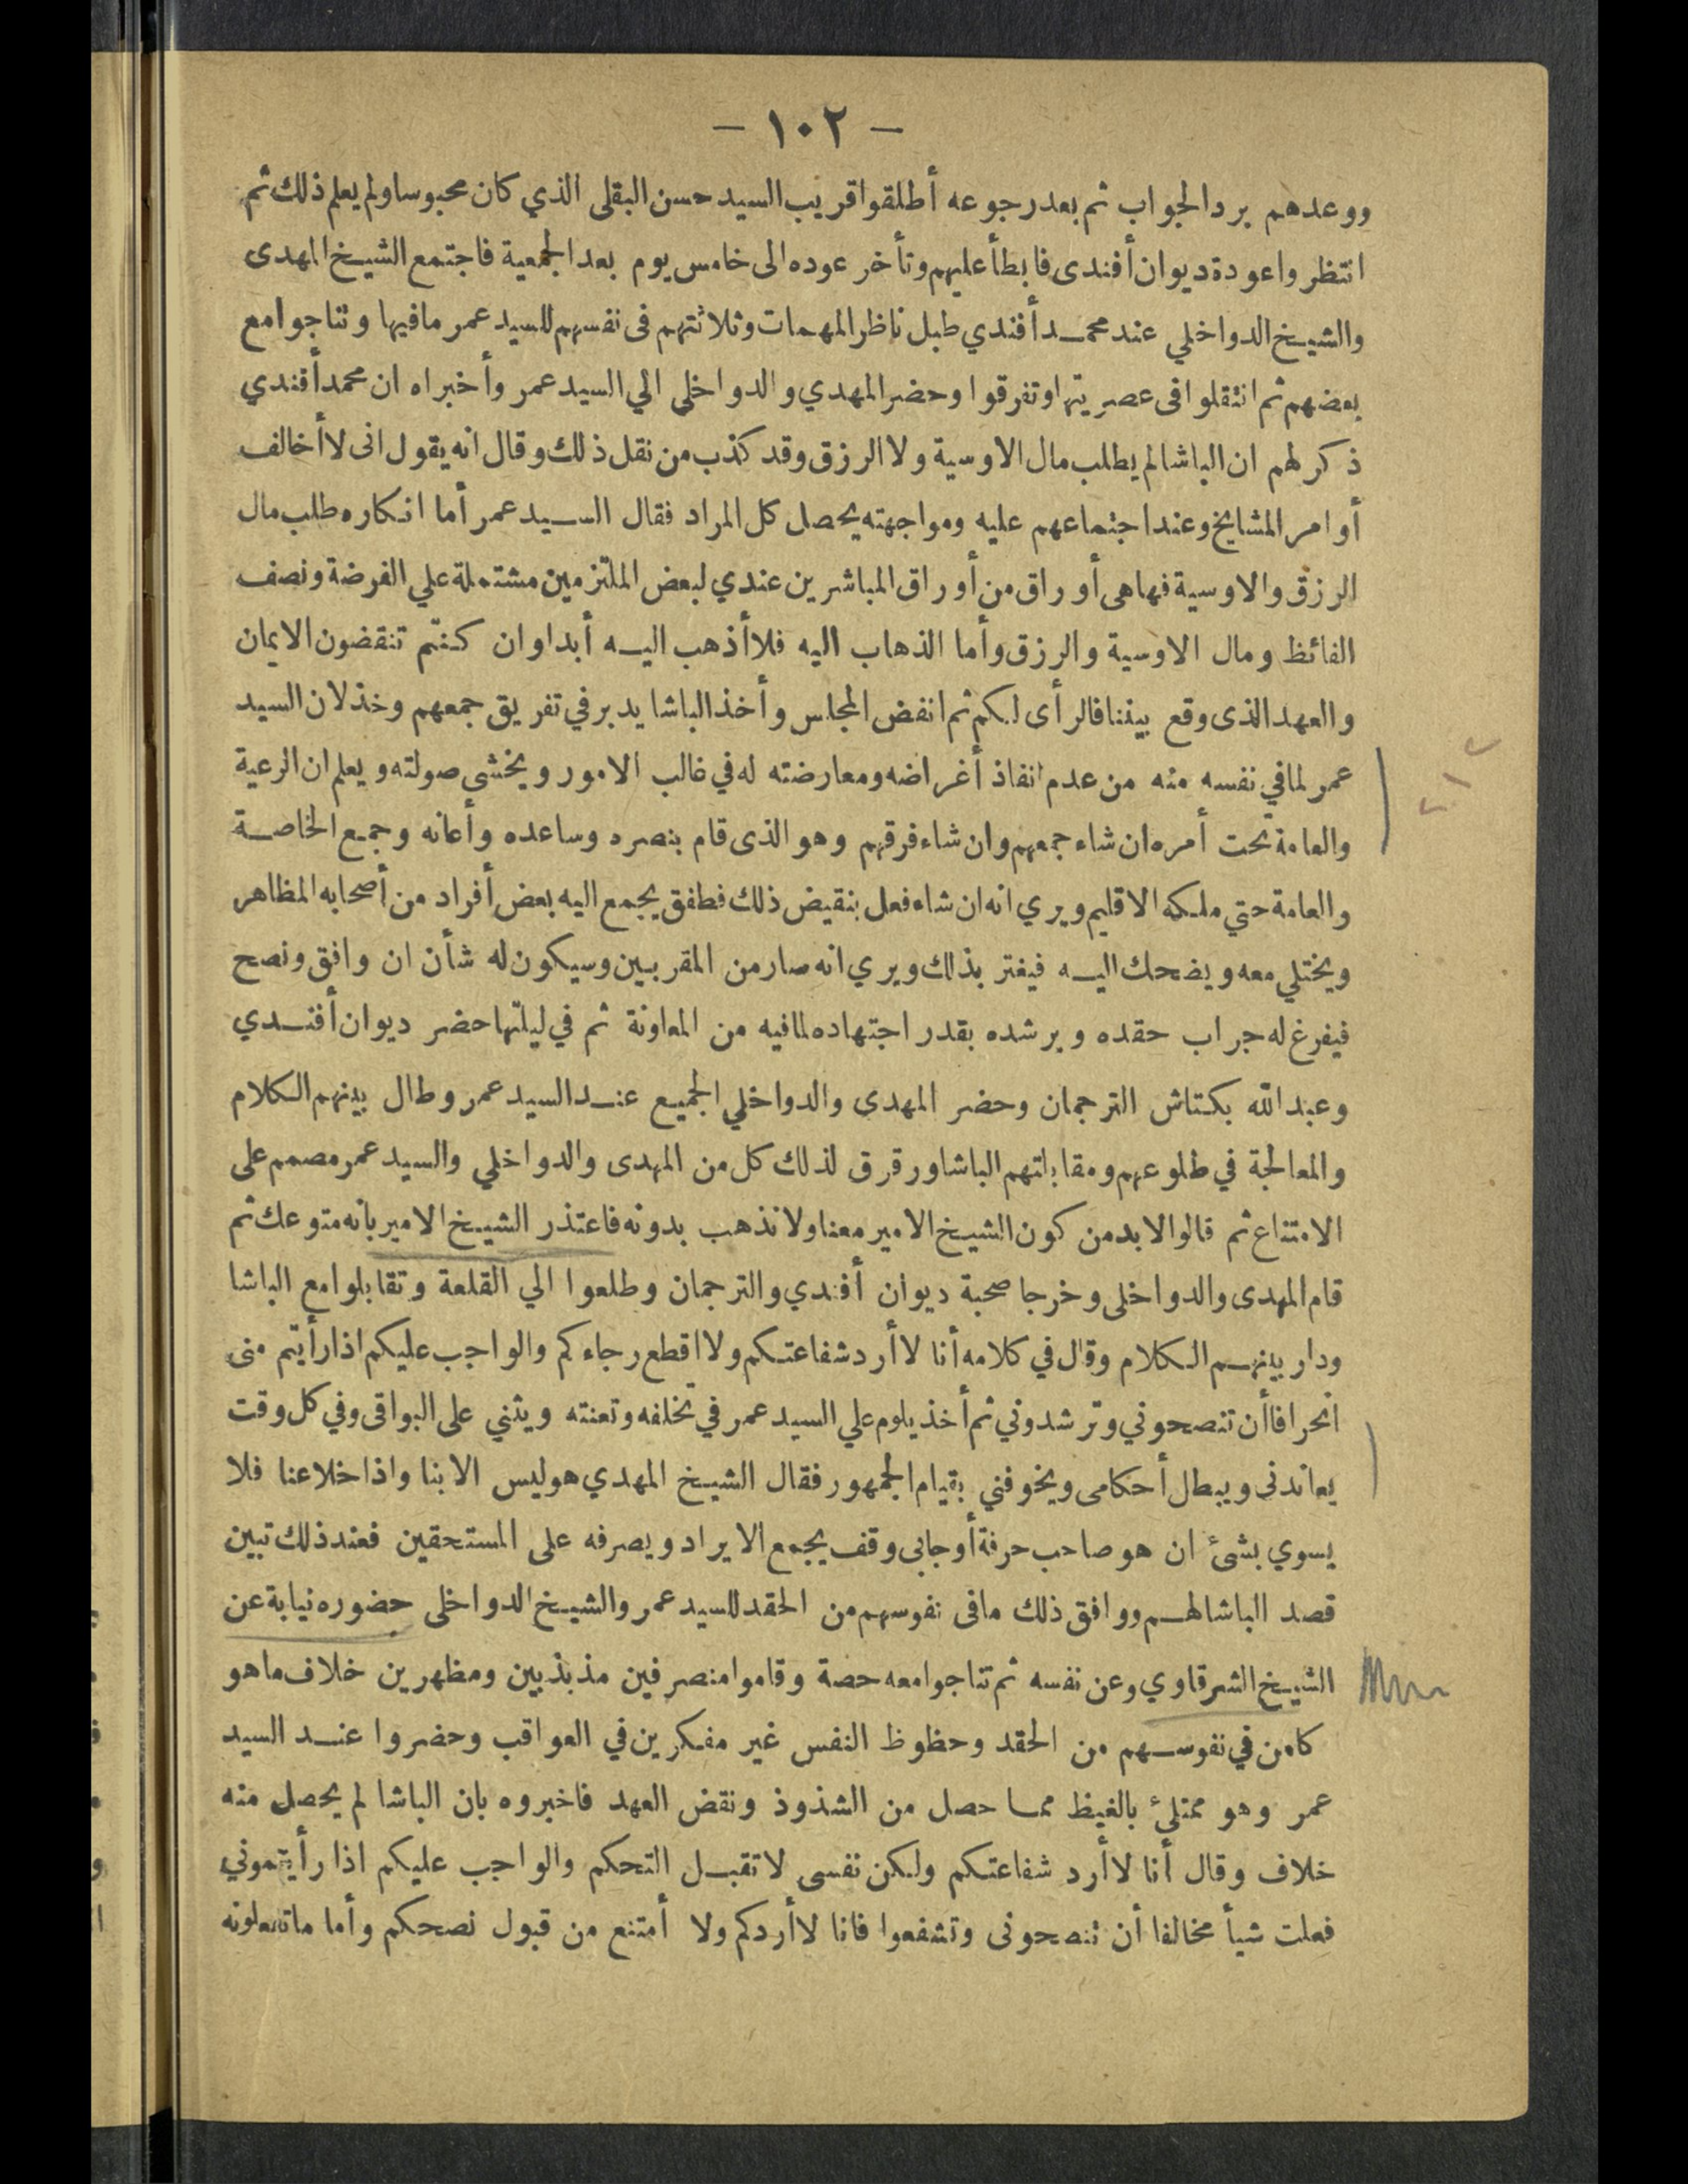 — ١٠٢ —
ووعدهم برد الجواب ثم بعد رجوعه أطلقوا قريب السيد حسن البقلى الذي كان محبوسا ولم يعلم ذلك ثم
انتظروا عودة ديوان أفندى فابطأ عليهم وتأخر عوده الى خامس يوم بعد الجمعية فاجتمع الشيخ المهدى
والشيخ الدواخلي عند محمد أفندي طبل ناظر المهمات وثلاثتهم فى نفسهم للسيد عمر مافيها وتناجوا مع
بعضهم ثم انتقلوا فى عصريتها وتفرقوا وحضر المهدي والدواخلى الي السيد عمر وأخبراه ان محمد أفندي
ذكر لهم ان الباشا لم يطلب مال الاوسية ولا الرزق وقد كذب من نقل ذلك وقال انه يقول انى لا أخالف
أوامر المشايخ وعند اجتماعهم عليه ومواجهته يحصل كل المراد فقال السيد عمر أما انكاره طلب مال
الرزق والاوسية فهاهى أوراق من أوراق المباشرين عندي لبعض الملتزمين مشتملة علي الفرضة ونصف
الفائظ ومال الاوسية والرزق وأما الذهاب اليه فلا أذهب اليه أبدا وان كنتم تنقضون الايمان
والعهد الذى وقع بيننا فالرأى لكم ثم انفض المجلس وأخذ الباشا يدبر في تفريق جمعهم وخذلان السيد
عمر لما في نفسه منه من عدم انفاذ أغراضه ومعارضته له في غالب الامور ويخشى صولته ويعلم ان الرعية
والعامة تحت أمره ان شاء جمعهم وان شاء فرقهم وهو الذى قام بنصره وساعده وأعانه وجمع الخاصة
والعامة حتي ملكه الاقليم ويري انه ان شاء فعل بنقيض ذلك فطفق يجمع اليه بعض أفراد من أصحابه المظاهر
ويختلي معه ويضحك اليه فيغتر بذلك ويري انه صار من المقربين وسيكون له شأن ان وافق ونصح
فيفرغ له جراب حقده ويرشده بقدر اجتهاده لما فيه من المعاونة ثم في ليلتها حضر ديوان أفندي
وعبد الله بكتاش الترجمان وحضر المهدى والدواخلي الجميع عند السيد عمر وطال بينهم الكلام
والمعالجة في طلوعهم ومقابلتهم الباشا ورقرق لذلك كل من المهدى والدواخلي والسيد عمر مصمم على
الامتناع ثم قالوا لابد من كون الشيخ الامير معنا ولا نذهب بدونه فاعتذر الشيخ الامير بانه متوعك ثم
قام المهدى والدواخلى وخرجا صحبة ديوان أفندي والترجمان وطلعوا الي القلعة وتقابلوا مع الباشا
ودار بينهم الكلام وقال في كلامه أنا لا أرد شفاعتكم ولا اقطع رجاءكم والواجب عليكم اذا رأيتم منى
انحرافا أن تنصحوني وترشدوني ثم أخذ يلوم علي السيد عمر في تخلفه وتعنته ويثني على البواقى وفي كل وقت
يعاندنى ويبطل أحكامى ويخوفني بقيام الجمهور فقال الشيخ المهدي هو ليس الا بنا واذا خلا عنا فلا
يسوي بشئ ان هو صاحب حرفة أو جابى وقف يجمع الايراد ويصرفه على المستحقين فعند ذلك تبين
قصد الباشا لهم ووافق ذلك مافى نفوسهم من الحقد للسيد عمر والشيخ الدواخلى حضوره نيابة عن
الشيخ الشرقاوي وعن نفسه ثم تناجوا معه حصة وقاموا منصرفين مذبذبين ومظهرين خلاف ماهو
كامن في نفوسهم من الحقد وحظوظ النفس غير مفكرين في العواقب وحضروا عند السيد
عمر وهو ممتلئ بالغيظ مما حصل من الشذوذ ونقض العهد فاخبروه بان الباشا لم يحصل منه
خلاف وقال أنا لا أرد شفاعتكم ولكن نفسى لا تقبل التحكم والواجب عليكم اذا رأيتموني
فعلت شيأ مخالفا أن تنصحونى وتشفعوا فانا لا أردكم ولا أمتنع من قبول نصحكم وأما ماتفعلونه